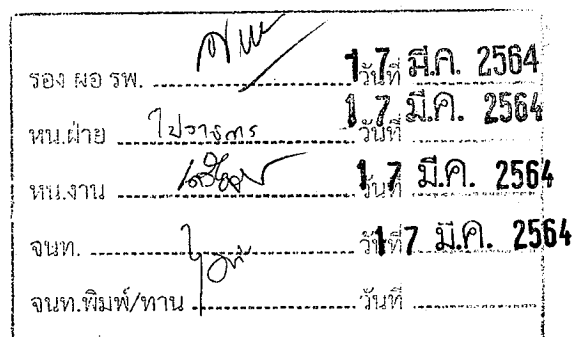 รอง ผอ รพ. วันที่ 17 มี.ค. 2564
หน.ฝ่าย วันที่ 17 มี.ค. 2564
หน.งาน วันที่ 17 มี.ค. 2564
จนท. วันที่ 17 มี.ค. 2564
จนท.พิมพ์/ทาน วันที่